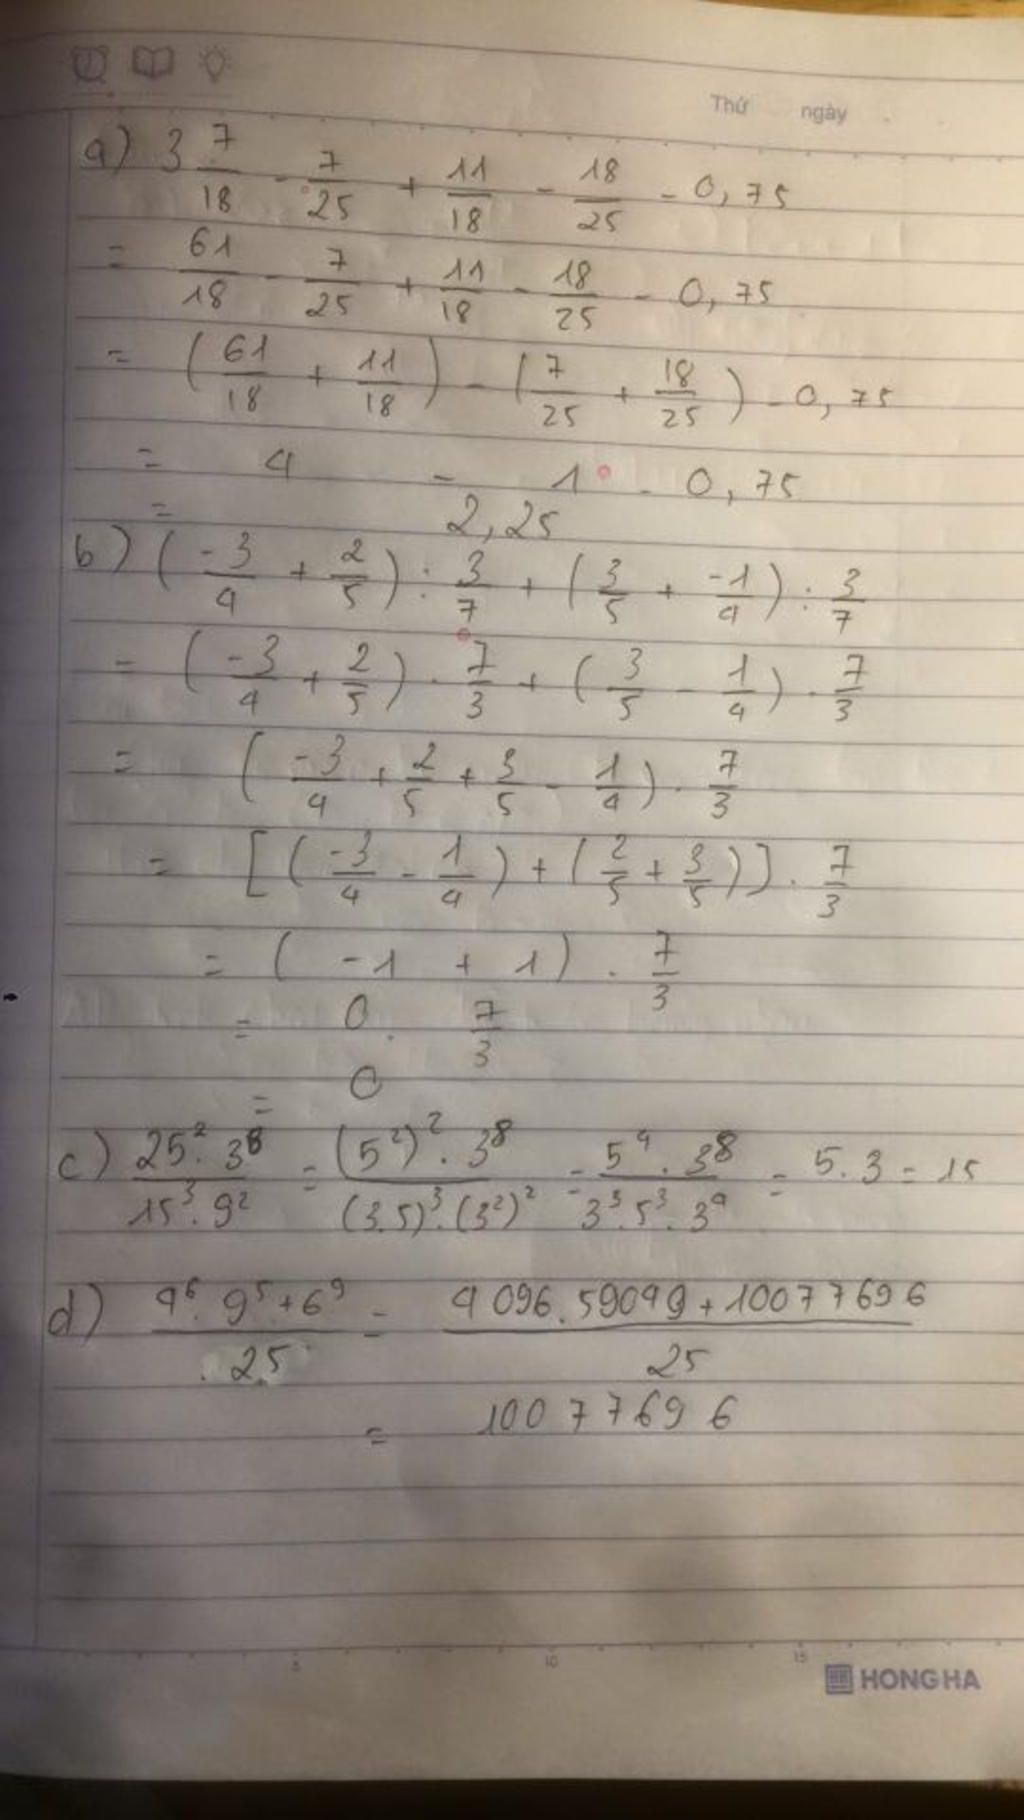 Thứ ngày
a) 3 7/18 - 7/25 + 11/18 - 18/25 - 0,75
= 61/18 - 7/25 + 11/18 - 18/25 - 0,75
= (61/18 + 11/18) - (7/25 + 18/25) - 0,75
= 4 - 1 - 0,75
= 2,25
b) (-3/4 + 2/5) : 3/7 + (3/5 + -1/4) : 3/7
= (-3/4 + 2/5) . 7/3 + (3/5 - 1/4) . 7/3
= (-3/4 + 2/5 + 3/5 - 1/4) . 7/3
= [(-3/4 - 1/4) + (2/5 + 3/5)] . 7/3
= (-1 + 1) . 7/3
= 0 . 7/3
= 0
c) 25² . 3⁸ / 15³ . 9² = (5²)² . 3⁸ / (3.5)³ . (3²)² = 5⁴ . 3⁸ / 3³ . 5³ . 3⁴ = 5 . 3 = 15
d) 4⁶ . 9⁵ + 6⁹ / 25 = 4096 . 59049 + 10077696 / 25
= 10077696
5 10 15
HONG HA